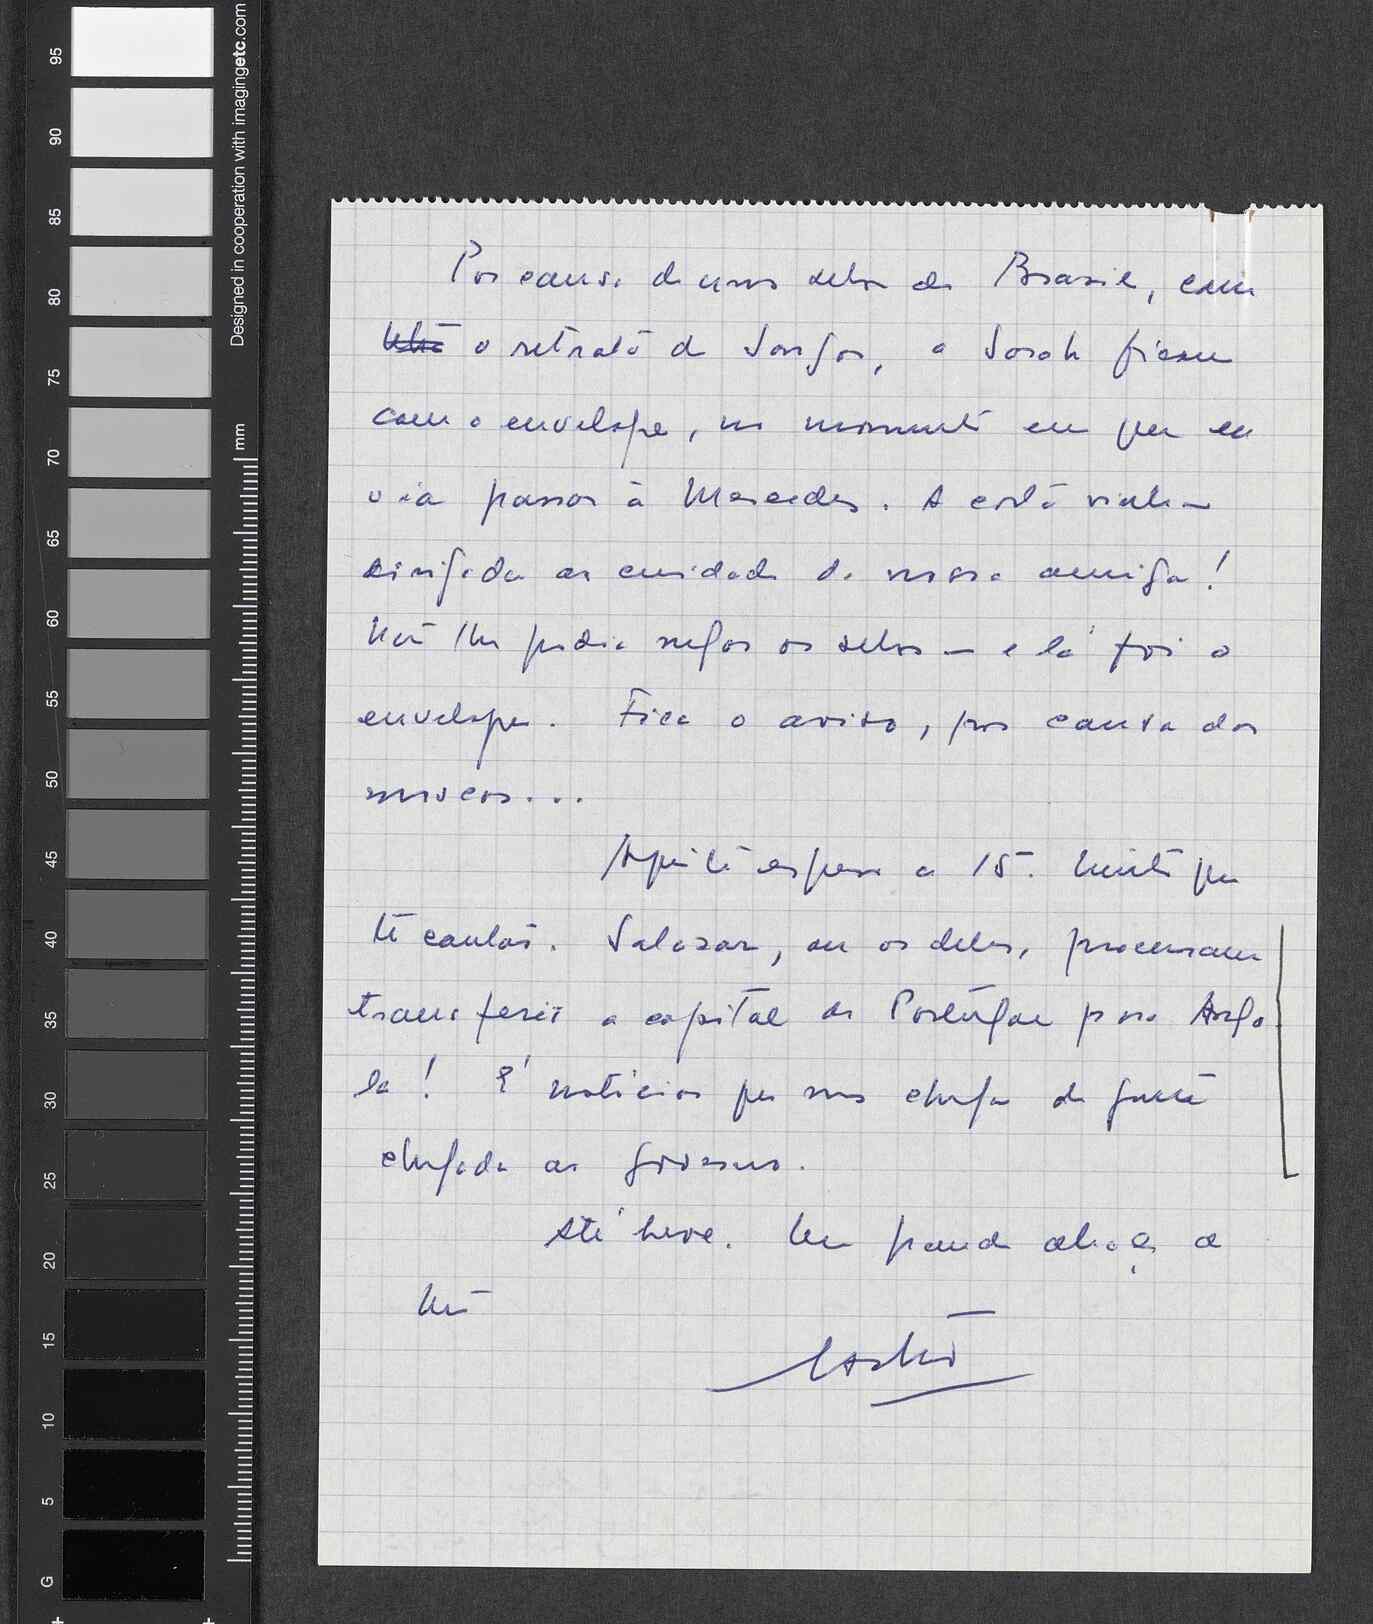 Designed in cooperation with imagingetc.com
mm
95
90
85
80
75
70
65
60
55
50
45
40
35
30
25
20
15
10
5
G
Por causa de uns selos do Brasil, com
o retrato de Vargas, a Sarah ficou
com o envelope, no momento em que eu
o ia passar à Mercedes. A carta vinha
dirigida ao cuidado da nossa amiga!
Não lhe podia negar os selos – e lá foi o
envelope. Fica o aviso, por causa das
moscas...
Aqui te espero a 15. Muito que
te contar. Salazar, ou os deles, procuram
transferir a capital de Portugal para Ango
la! É notícia que nos chega de fonte
chegada ao governo.
Até breve. Um grande abraço do